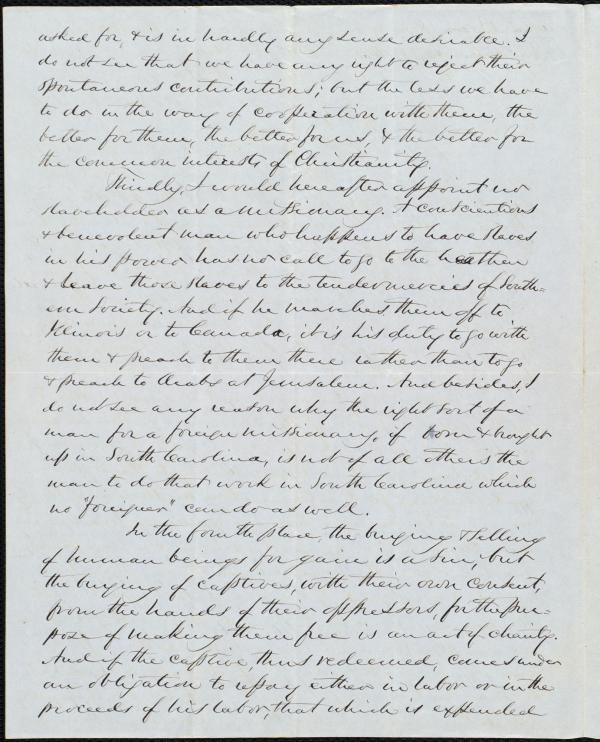 asked for, & is in hardly any sense desirable. I
do not see that we have any right to reject their
spontaneous contributions; but the less we have
to do in the way of cooperation with them, the
better for them, the better for us, & the better for
the common interests of Christianity.
Thirdly, I would hereafter appoint no
slaveholder as a missionary. A conscientious
& benevolent man who happens to have slaves
in his power has no call to go to the heathen
& leave those slaves to the tender mercies of South-
ern Society. And if he marches them off to
Illinois or to Canada, it is his duty to go with
them & preach to them there rather than to go
& preach to Arabs at Jerusalem. And besides, I
do not see any reason why the right sort of a
man for a foreign missionary, if born & brought
up in South Carolina, is not of all others the
man to do that work in South Carolina which
no "foreigner" can do as well.
In the fourth place, the buying & selling
of human beings for gain is a sin; but
the buying of captives, with their own consent,
from the hands of their oppressors, for the pur-
pose of making them free is an act of charity.
And if the captive, thus redeemed, comes under
an obligation to repay either in labor or in the
proceeds of his labor, that which is expended